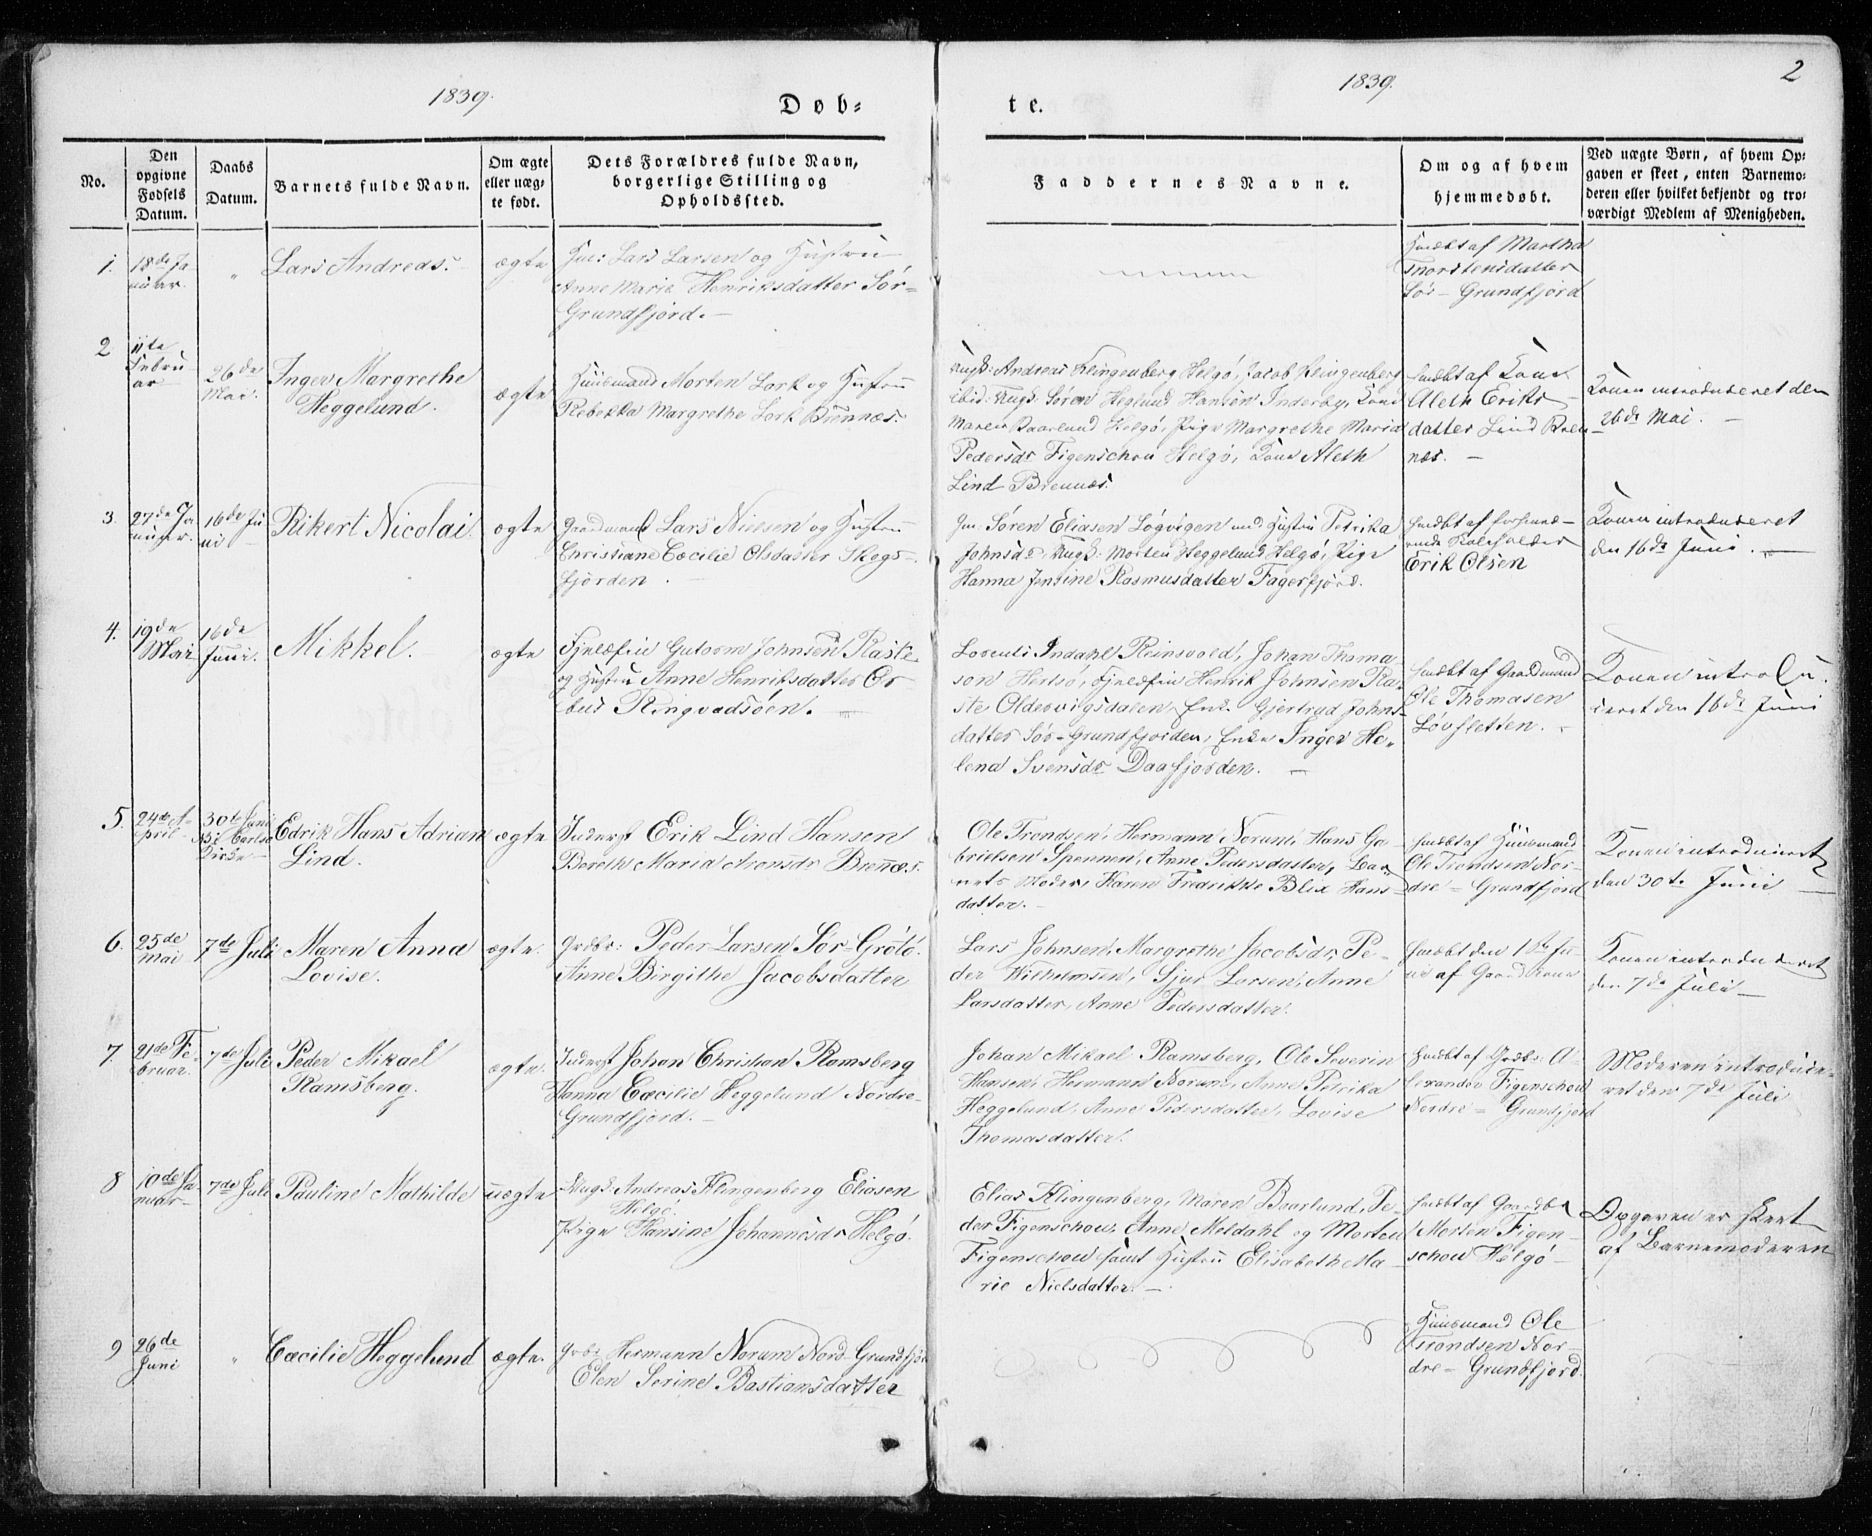 1839.
Døb-
te.
1839.
2
No.
Den
opgivne
Fødsels
Datum.
Daabs
Datum.
Barnets fulde Navn.
Om ægte
eller uæg-
te født.
Dets Forældres fulde Navn,
borgerlige Stilling og
Opholdssted.
Faddernes Navne.
Om og af hvem
hjemmedøbt.
Ved uægte Børn, af hvem Op-
gaven er skeet, enten Barnemo-
deren eller hvilket bekjendt og tro-
værdigt Medlem af Menigheden.
1.
18de Ja
nuar.
"
Lars Andreas.
ægte
Lars Larsen og Hustru
Anne Marie Henriksdatter Sør-
Grundfjord.
hmdbt af Martha
Thorstensdatter
Sør-Grundfjord
2
11te
Febru
ar
26de
Mai.
Inger Margrethe
Heggelund.
ægte
Huusmand Morten Lork og Hustru
Rebekka Margrethe Lork Brennæs.
Ungk: Andreas Klingenberg Helgø, Jacob Klingenberg
ibid: Ungk: Søren Heglund Hansen Inderby, Kone
Maren Baarlund Helgø, Pige Margrethe Maria
Pedersdr Figenschou Helgø, Kone Aleth
Lind Brennæs.
hmdbt af Kone
Aleth Eriks-
datter Lind Bren
næs.
Konen introduceret den
26de Mai.
3.
27de Ja
nuar.
16de Ju
ni
Rikert Nicolai.
ægte
Gaardmand Lars Nielsen og Hustru
Christiane Cæcilie Olsdatter Skogs-
fjorden.
Søren Eliasen Løgvigen med Hustru Petrika
Johnsdr, Ungk: Morten Heggelund Helgø, Pige
Hanna Jensine Rasmusdatter Fagerfjord.
hmdbt af
Skoleholder
Erik Olsen
Konen introduceret
den 16de Juni.
4.
19de
Mai
16de
Juni.
Mikkel.
ægte
Fjeldfin Gutorm Johnsen Raste
og Hustru Anne Henriksdatter
Ringvadsøen.
Lorents Indahl Reinsvold, Johan Thoma-
son Hersø, Fjeldfin Henrik Johnsen Ra-
ste Oldervigsdalen, Enke Gjertrud Johns-
datter Sør-Grundfjorden, Enke Inger He-
lena Svensdr Daafjorden.
hmdbt af Gaardmand
Ole Thomasen
Løvsletten.
Konen introdu-
ceret den 16de Juni
5.
24de A-
pril
30te Juni
Karlsø
Kirke
Edrik Hans Adrian
Lind.
ægte
Inderst Erik Lind Hansen
Bereth Maria Aronsdr Brennæs.
Ole Trondsen, Hermann Norum, Hans Ga-
brielsen Spennen, Anne Pedersdatter, Bar-
nets Moder, Karen Fredrikke Blix Hans-
datter.
hmdbt af Huusmand
Ole Trondsen Nor-
dre-Grundfjord
Konen introduceret
den 30te Juni
6.
25de
Mai
7de Juli
Maren Anna
Lovise.
ægte.
Grdbr: Peder Larsen Sør-Grøtø.
Anne Birgithe Jacobsdatter
Lars Johnsen, Margrethe Jacobsdr, Pe-
der Wilhelmsen, Sjur Larsen, Anne
Larsdatter, Anne Pedersdatter.
hmdbt den 1ste Ju-
ni af Gaardkone
Konen introduceret
den 7de Juli
7.
21de Fe-
bruar.
7de Juli
Peder Mikael
Ramsberg.
ægte.
Inderst Johan Christian Ramsberg
Hanna Cæcilie Heggelund Nordre-
Grundfjord.
Johan Mikael Ramsberg, Ole Severin
Hansen, Hermann Norum, Anne Petrika
Heggelund, Anne Pedersdatter, Lovise
Thomasdatter.
hmdbt af Grdbr: A-
lexander Figenschou
Nordre-Grundfjord
Moderen introduce-
ret den 7de Juli
8
10de Ja-
nuar
7de Juli
Pauline Mathilde
uægte
Ungk: Andreas Klingenberg Eliasen
Helgø.
Pige Hansine Johannesdr Helgø.
Elias Klingenberg, Maren Baarlund, Pe-
der Figenschou, Anne Meldahl og Morten
Figenschou samt Hustru Elisabeth Ma-
rie Nielsdatter.
hmdbt af Gaardbr
Morten Figen-
schou Helgø
Opgaven er skeet
af Barnemoderen
9
26de
Juni
"
Cæcilie Heggelund
ægte.
Grbr Hermann Norum Nord-Grundfjord
Elen Serine Bastiansdatter
Huusmand Ole
Trondsen Nor-
dre-Grundfjord.